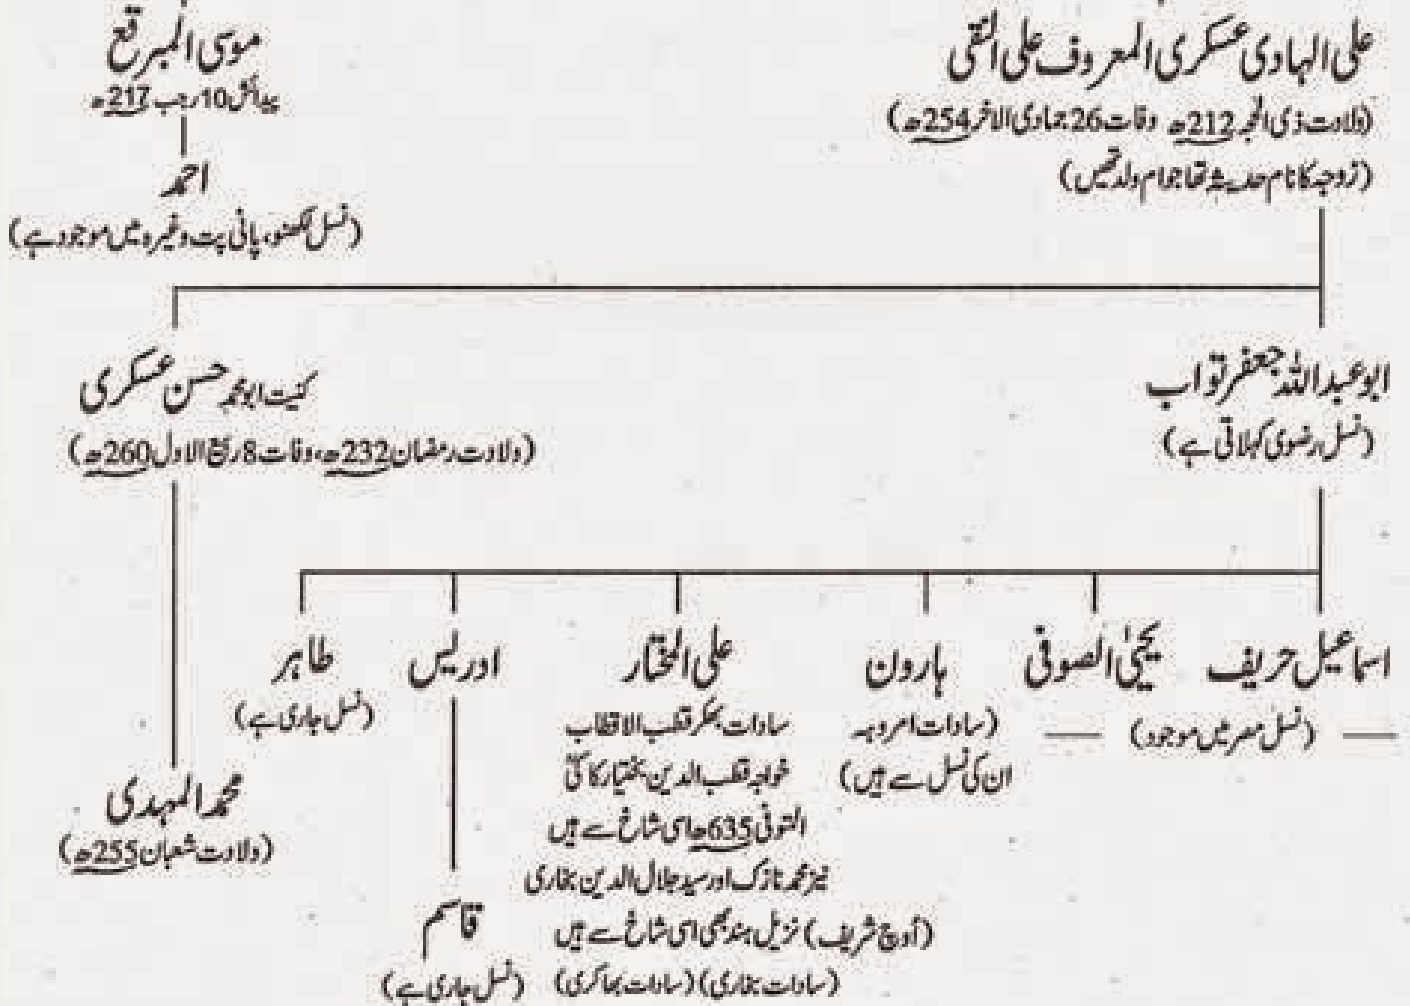 علی الہادی عسکری المعروف علی النقی
(ولادت ذی الحجہ 212ھ وفات 26 جمادی الآخر 254ھ)
(زوجہ کا نام حدیثہ تھا جو ام ولد تھیں)
موسی المبرقع
پیدائش 10 رجب 217ھ
احمد
(نسل لکھنو، پانی پت وغیرہ میں موجود ہے)
ابو عبداللہ جعفر تواب
(نسل رضوی کہلاتی ہے)
کنیت ابو محمد حسن عسکری
(ولادت رمضان 232ھ، وفات 8 ربیع الاول 260ھ)
اسماعیل حریف
یحییٰ الصوفی
(نسل مصر میں موجود)
ہارون
(سادات امروہہ
ان کی نسل سے ہیں)
علی المختار
سادات بھکر قطب الاقطاب
خواجہ قطب الدین بختیار کاکی
المتوفی 635ھ اسی شاخ سے ہیں
نیز محمد نازک اور سید جلال الدین بخاری
(اوچ شریف) نزیل ہند بھی اسی شاخ سے ہیں
(سادات بخاری) (سادات بھاکری)
ادریس
قاسم
(نسل جاری ہے)
طاہر
(نسل جاری ہے)
محمد المہدی
(ولادت شعبان 255ھ)